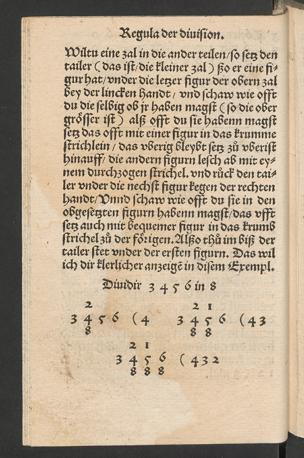 Regula der division.
Wiltu eine zal in die ander teilen/ so setz den
tailer ( das ist/ die kleiner zal ) ßo er eine fi⸗
gur hat/ vnder die letzer figur der obern zal
bey der lincken Handt/ vnd schaw wie offt
du die selbig ob jr haben magst ( so die ober
grösser ist ) alß offt du sie habenn magst
setz das offt mit einer figur in das krumme
strichlein/ das vberig bleybt setz zů vberist
hinauff/ die andern figurn lesch ab mit ey⸗
nem durchzogen strichel. vnd růck den tai⸗
ler vnder die nechst figur kegen der rechten
handt/ Vnnd schaw wie offt du sie in den
obgesetzten figurn habenn magst/ das vfft
setz auch mit bequemer figur in das krumb
strichel zů der förigen. Alßo thů im biß der
tailer stet vnder der ersten figurn. Das wil
ich dir klerlicher anzeigē in disem Exempl.
Diuidir 3 4 5 6 in 8
2
3 4 5 6 ( 4
8
2 1
3 4 5 6 ( 4 3
8 8
2 1
3 4 5 6 ( 4 3 2
8 8 8